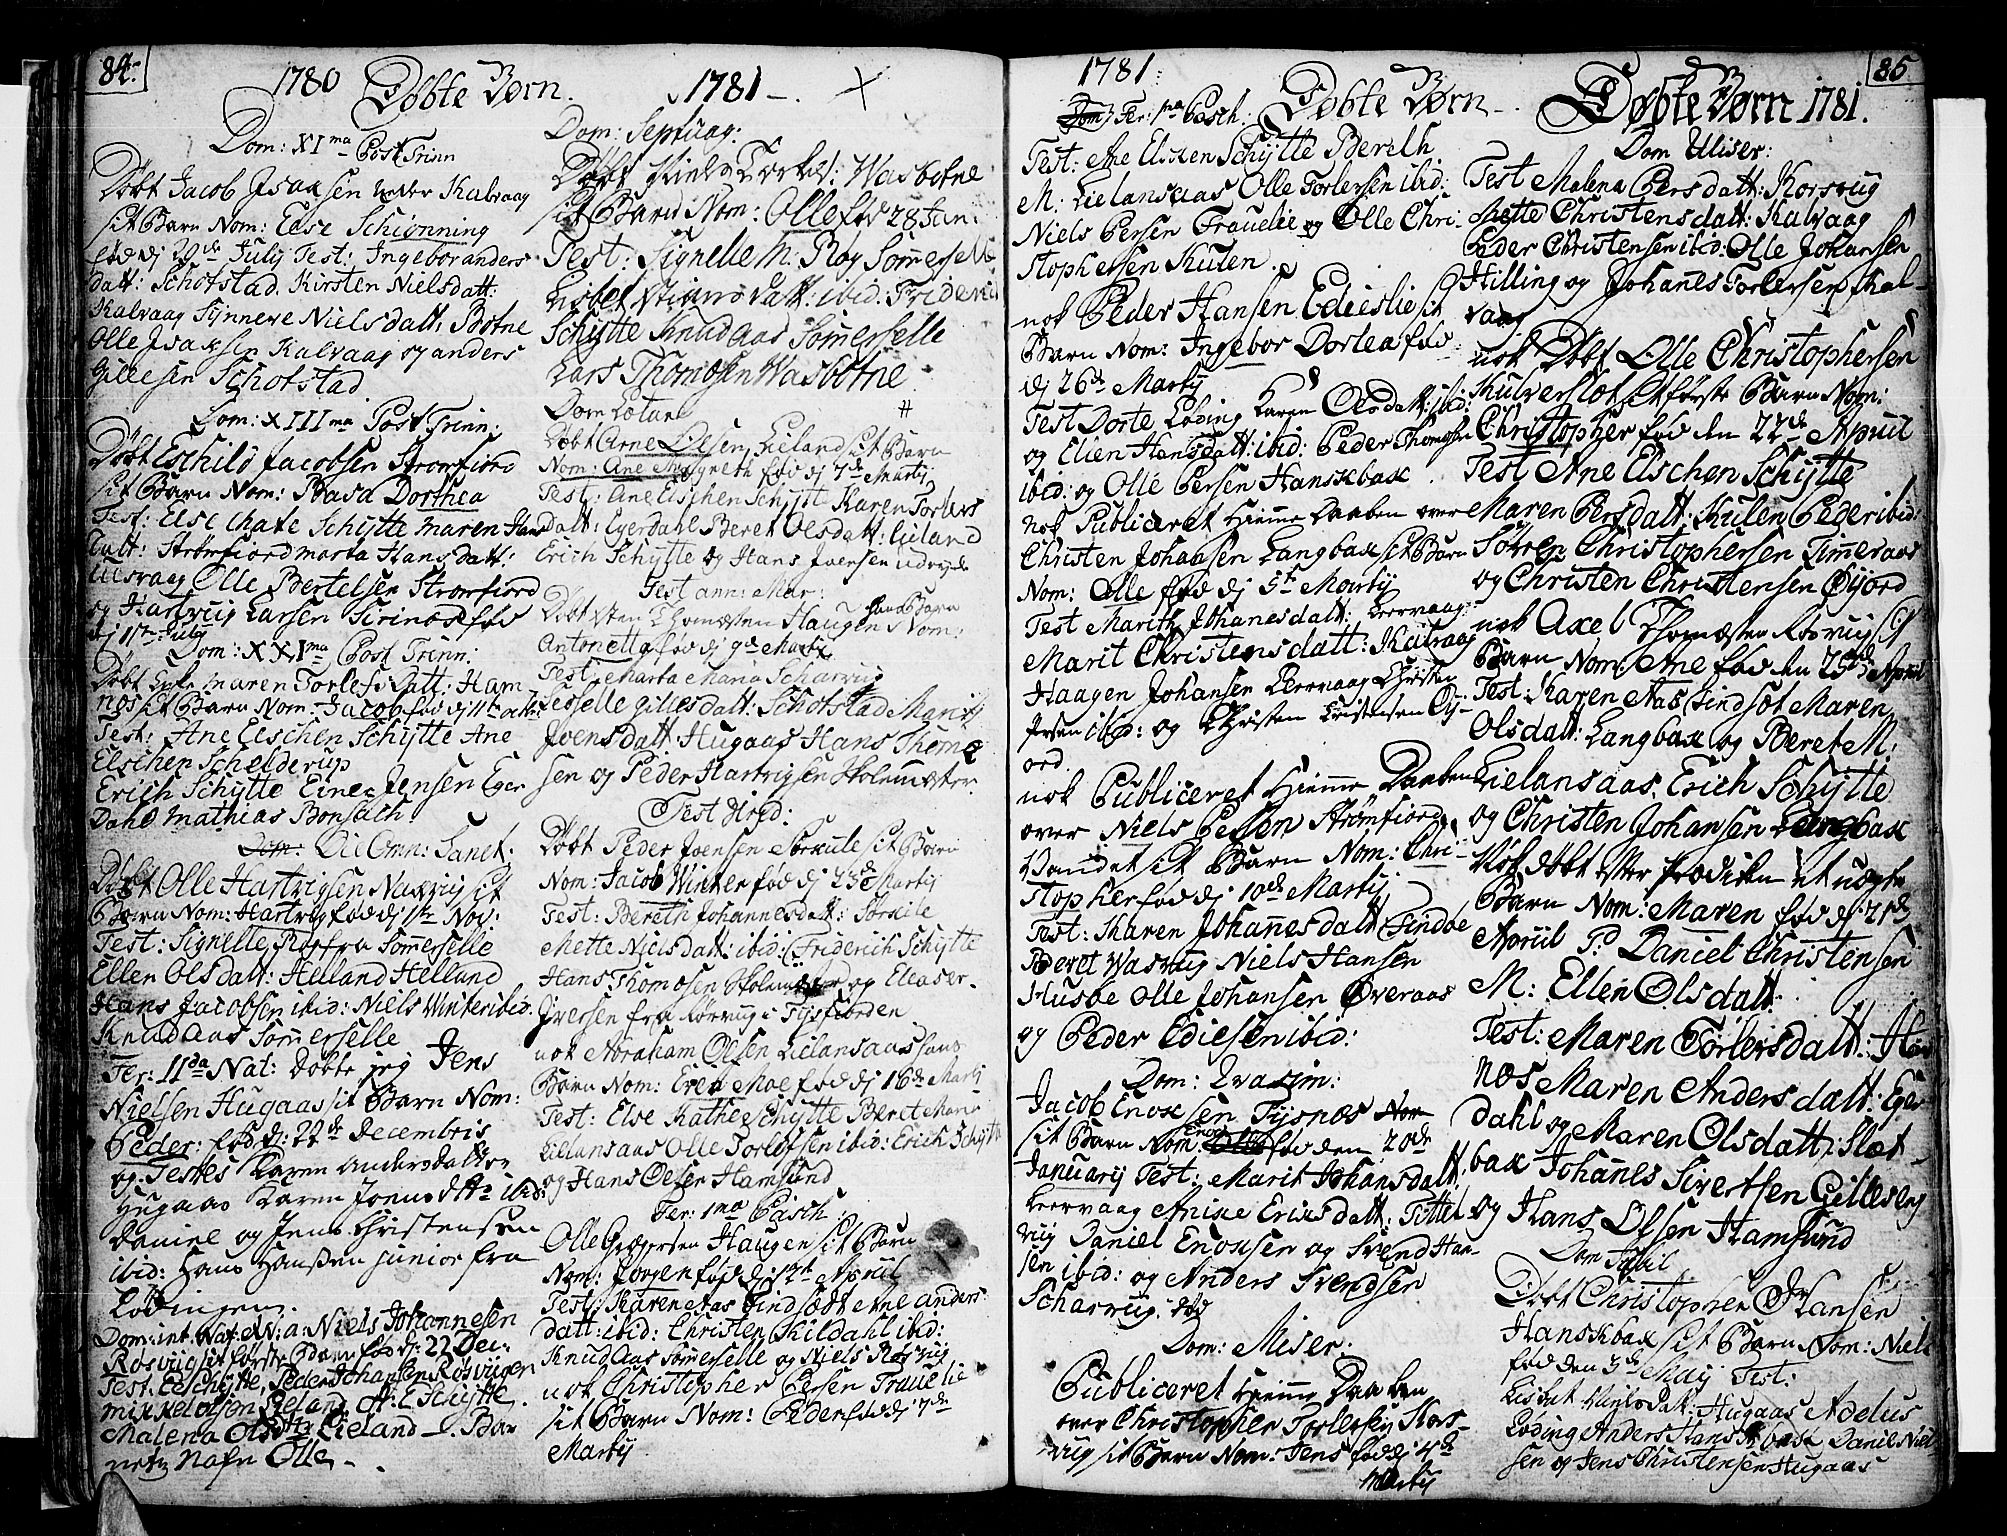 84.
1780 Døbte Børn.
Dom: XIma Post Trinn
Døbt Jacob Isaksen Kalvaag
sit Barn Nom: Else Schiønning
fød dj 29de July Test: Ingebor anders
datt: Schotstad. Kirsten Nielsdatt:
Kalvaag Synneve Nielsdatt: Botne
Olle Isaksen Kalvaag og anders
Gillesen Schotstad
Dom: XIIIma Post Trinn:
Døbt Eschild Jacobsen Strømfiord
sit Barn Nom: Basa Dorthea
Test: Else Chate Schytte maren Hans
datt: Strømfiord marta Hansdatt:
Ulsvaag Olle Bertelsen Strømfiord
og Hartvig Larsen fød
dj 1ste July
Dom: XXIma Post Trinn:
Døbt maren Torlefsdatt: Ham-
nøs sit Barn Nom: Jacob fød dj 11te octbr:
Test: Ane Elschen Schytte Ane
Elschen Schelderup
Erich Schytte Einer Jensen Eger
Dahl Mathias Bonsach
Die Omn: Sanct:
Døbt Olle Hartvigsen Naxvig sit
Barn Nom: Hartvig fød dj 1ste Nov:
Test: Signelle Røy fra Sommerselle
Ellen Olsdatt: Helland Helland
Hans Jacobsen ibid: Niels Winter ibid:
Knud Aas Sommerselle
Fer: IIda Nat: Døbte jeg Jens
Nielsen Hugaas sit Barn Nom:
Peder: fød dj: 22de Decembris
og Testes Karen Andersdatter
Hugaas Karen Joensdttr ibid:
Daniel og Jens Christensen
ibid: Hans Hansen junior fra
Lødingen.
Dom: int: Nat: & N: a: Niels Johannesen
Røsvig sit første Barn fød dj: 22 Dec:
Test: E Schytte, Peder Johansen Røsvigen
Mikkel Olsen Lieland A: E Schytte.
Malena Olsdttr Lieland. Bar
nets Nafn Olle.
1781
Dom: Septuag:
Døbt Wasbotne
sit Barn Nom: Olle fød 28 Jan:
Test: Signelle M: Røy Sommerselle
Lisbet ibid: Friderich
Schytte Knud Aas Sommerselle
Lars Thomosen Wasbotne
Dom Lætare
Døbt Arne Olsen Lieland sit Barn
Nom: Ane Magreth fød dj 7de Martij
Test: Ane Elschen Schytte Karen Torlers
datt: Egerdahl Beret Olsdatt: Lieland
Erich Schytte og Hans Joensen
Fest ann: Mar:
Døbt Sten Thomæsen Haugen hans Barn Nom:
Antonetta fød dj 9de Martij
Test: Marta Maria Scharvig
Sesselle Gillesdatt: Schotstad Marit
Joensdatt: Hugaas Hans Thomæ
sen og Peder Hartvigsen Skolemester
Fest Virid:
Døbt Peder Joensen Sørkule sit Barn
Nom: Jacob Winter fød dj 23de Martij
Test: Bereth Johannesdatt: Sørkule
Mette Nielsdatt: ibid: Friderich Schytte
Hans Thomosen Skolemester og Eleaser
Iversen fra Kørvig i Tysfiorden
nok Abraham Olsen Lielansaas hans
Barn Nom: Eren Moe fød dj 16de Martij
Test: Else Kathe Schytte Beret Mons
Lielansaas Olle Torlefsen ibid: Erich Schytte
og Hans Olsen Hamsund
Fer: 1ma Pasch:
Olle Gregersen Haugen sit Barn
Nom: Jørgen fød dj 12te Apriil
Test: Karen Aas Findsæt Ane anders
datt: ibid: Christen Kildahl ibid:
Knud Aas Sommerselle og Niels Røsvig
nok Christopher Persen Trauelie
sit Barn Nom: Peder fød dj 7de
Martij
85
1781: Døbte Børn
Fer: 1ma Pasch:
Test: Ane Elschen Schytte Bereth
M: Lielansaas Olle Torlersen ibid:
Niels Persen Trauelie og Olle Chri:
stophersen Kulen.
nok Peder Hansen Edieslie sit
Barn Nom: Ingebor Dortea fød
dj 26de Martij
Test Dorte Løding Karen Olsdatt: ibid:
og Elien Hansdatt: ibid: Peder Thomosen
ibid: og Olle Persen Hanskbax.
nok Publiceret Hiemme Daaben over
Christen Johansen Langbax sit Barn
Nom: Olle fød dj 5te Martij
Test Marith Johanesdatt: Leervaag:
Marit Christensdatt: Kalvaag
Haagen Johansen Leervaag Christen
Persen ibid: og Christen Cristensen Øj-
ord
nok Publiceret Hiemme Daaben
over Niels Persen Strømfiord
Vandet sit Barn Nom: Chri-
stopher fød dj 10de Martij
Test: Karen Johanesdatt Findøe
Beret Wasvig Niels Hansen
Husbe Olle Johansen Øveraas
og Peder Ediesen ibid:
Dom: Qvasim:
Jacob Enoxsen Tysnæs
sit Barn Nom: Enox fød den 20de
Januarij Test: Marit Johansdatt:
Leervaag Anixe Erixsdatt: Tittel
viig Daniel Enoxsen og Svend Han-
sen ibid: og Anders Svendsen
Scharvug:
Dom: Miser:
Publiceret Hiemme Daaben
over Christopher Torlersen Kors-
viig sit Barn Nom: Jens fød dj 4de
Martij
Døbte Børn 1781.
Dom Miser:
Test Malena Persdatt: Korsvig
Mette Christensdatt: Kalvaag
Peder Christensen ibid: Olle Johansen
Hilling og Johanes Torlersen Kal-
vaag
nok Døbt Olle Christophersen
Kulverslot sit første Barn Nom:
Christopher fød den 22de Apriil
Test Ane Elschen Schytte
Maren Persdatt: Kulen Peder ibid:
Søfren Christophersen Timeraas
og Christen Christensen Øyjord
nok Axel Thomæsen Rosvig sit
Barn Nom: Ane fød den 25de Apriil
Test: Karen Aas Findsæt Maren
Olsdatt: Langbax og Beret M:
Lielansaas, Erich Schytte
og Christen Johansen Langbax
Nok døbt efter Prædiken et uægte
Barn Nom: Maren fød dj 21de
Apriil P. Daniel Christensen
M: Ellen Olsdatt:
Test: Maren Torlersdatt: Ham
næs Maren Andersdatt: Eger
dahl og Maren Olsdatt: Slæt-
bax Johanes Sivertsen Gillesvig
og Hans Olsen Hamsund
Dom Jubil
Døbt Christopher Hansen
Hanskbax sit Barn Nom: Niels
fød den 3de Maij Test:
Lisbet Nielsdat: Hugaas Adelus
Løding Anders Hanskbax Daniel Niel
sen og Jens Christensen Hugaas